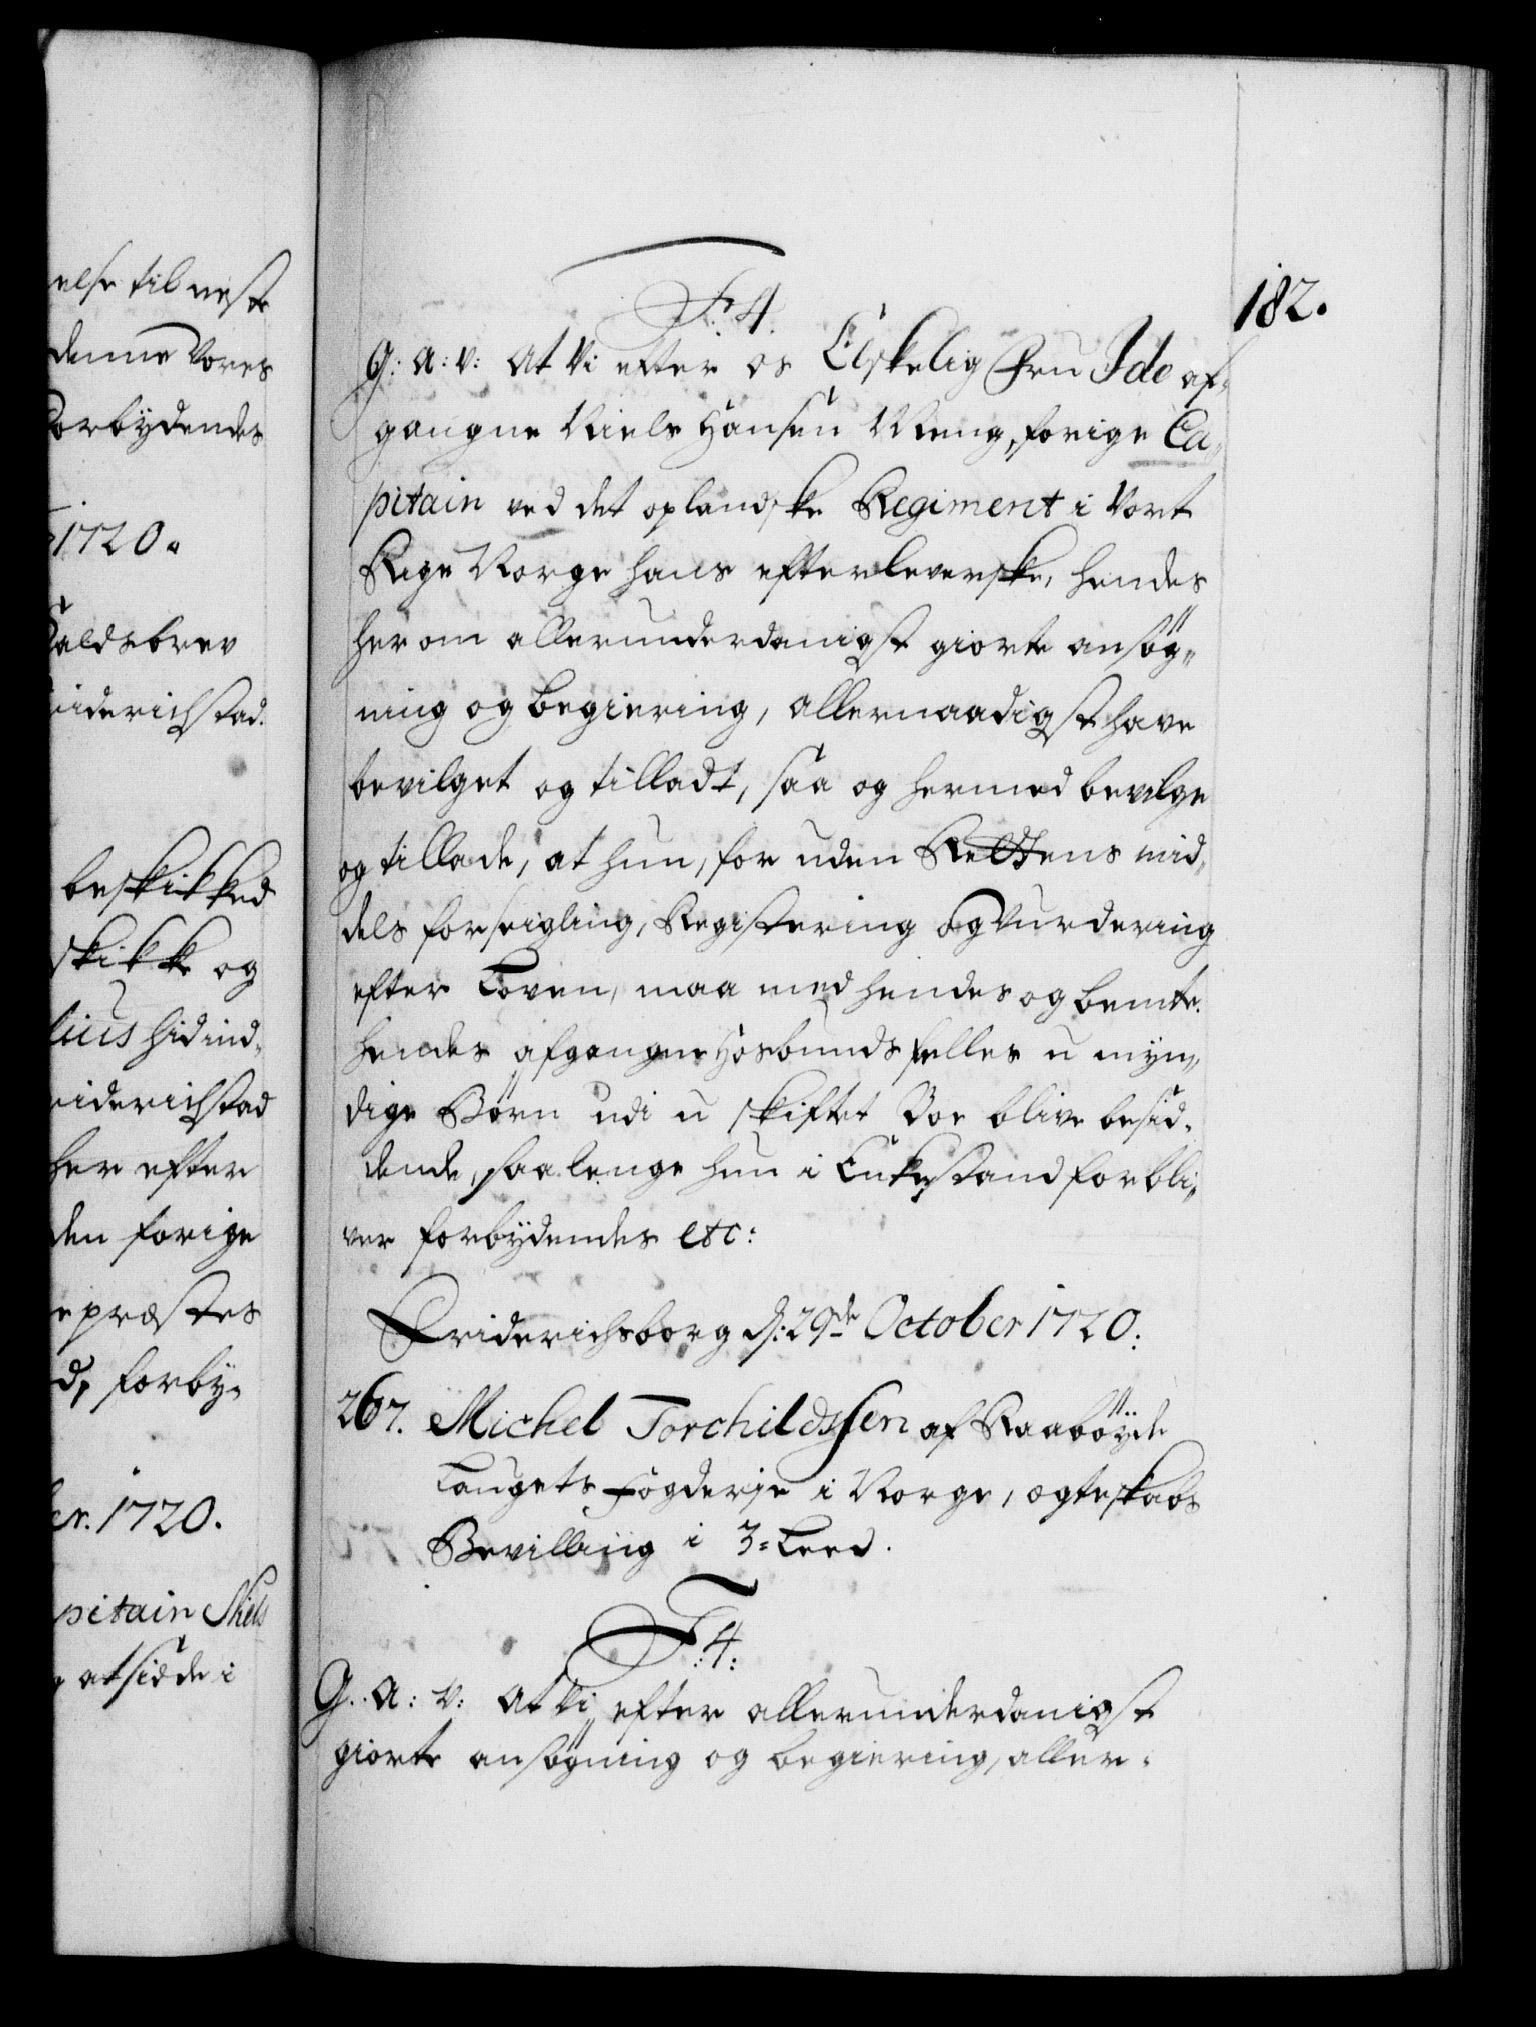 else til nest
denne Vores
Forbydendes
1720.
Kaldsbrev
Friderichstad.
beskikked
skikke og
lius hid ind-
riderichstad
her efter
den forige
e præstes
d, forby-
er. 1720.
pitain Niels
at sidde i
182.
F:4.
G: A: V: At Vi efter os Elskelig Fru Ide af-
gangne Niels Hansen Meng, forige Ca-
pitain ved det oplandske Regiment i Vort
Rige Norge hans efterleverske, hendes
her om allerunderdanigst giorte ansøg-
ning og begiering, allernaadigst have
bevilget og tilladt, saa og hermed bevilge
og tillade, at hun, for uden Rettens mid-
dels forseigling, Registering og Vurdering
efter Loven, maa med hendes og bemte.
hendes afgangne Hosbunds felles u myn-
dige Børn udi u skiftet Boe blive besid-
dende, saa lenge hun i Enkestand forbli-
ver forbydendes etc:
Friderichsborg d: 29de October 1720.
267. Michel Torchildssen af Raabøyde
Laugets Fogderje i Norge, ægteskabs
Bevilling i 3=Leed.
F:4:
G. A: V: At Vi efter allerunderdanigst
giorte ansøgning og begiering, aller-